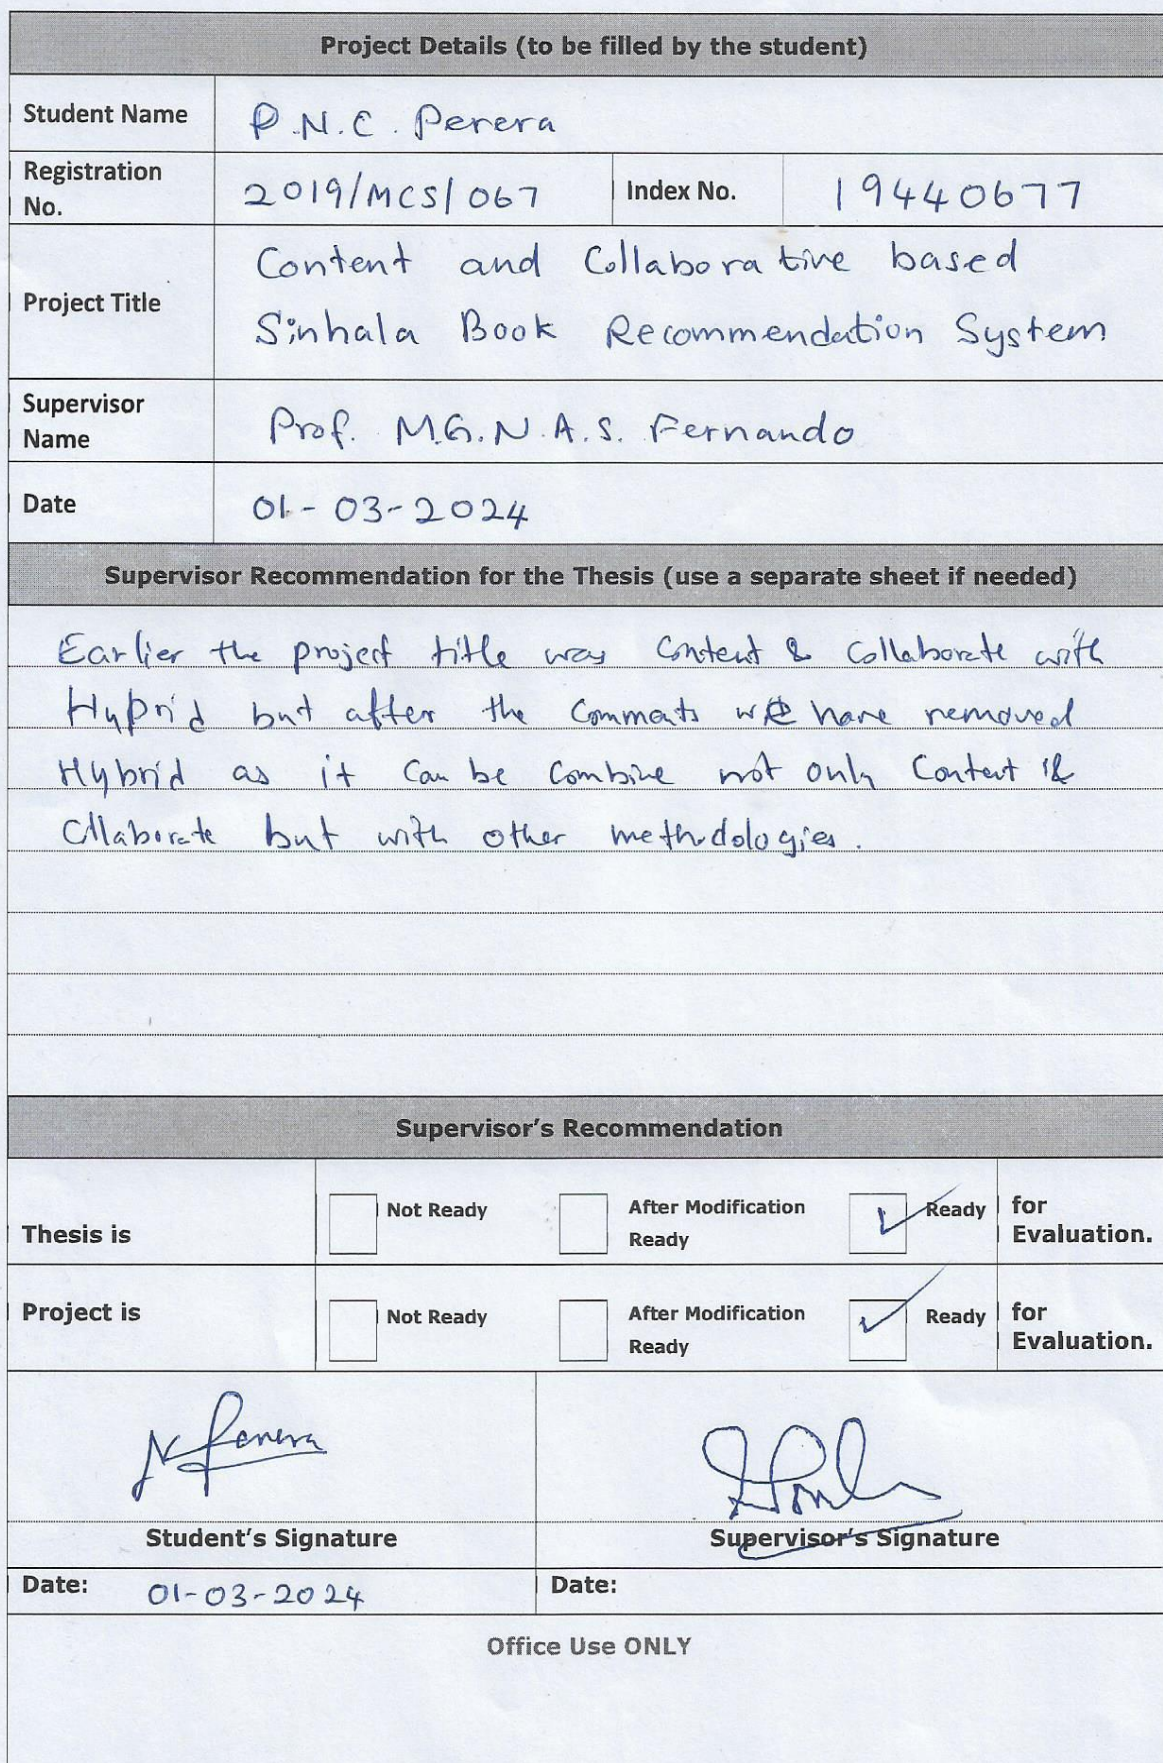 Project Details (to be filled by the student)
Student Name P.N.C. Perera
Registration No. 2019/MCS/067 Index No. 19440677
Project Title Content and Collaborative based
Sinhala Book Recommendation System
Supervisor Name Prof. M.G.N.A.S. Fernando
Date 01-03-2024
Supervisor Recommendation for the Thesis (use a separate sheet if needed)
Earlier the project title was Content & Collaborate with
Hybrid but after the Comments we have removed
Hybrid as it can be Combine not only Content &
Collaborate but with other methodologies.
Supervisor's Recommendation
Thesis is Not Ready After Modification Ready Ready for Evaluation.
Project is Not Ready After Modification Ready Ready for Evaluation.
N Perera
Student's Signature Supervisor's Signature
Date: 01-03-2024 Date:
Office Use ONLY